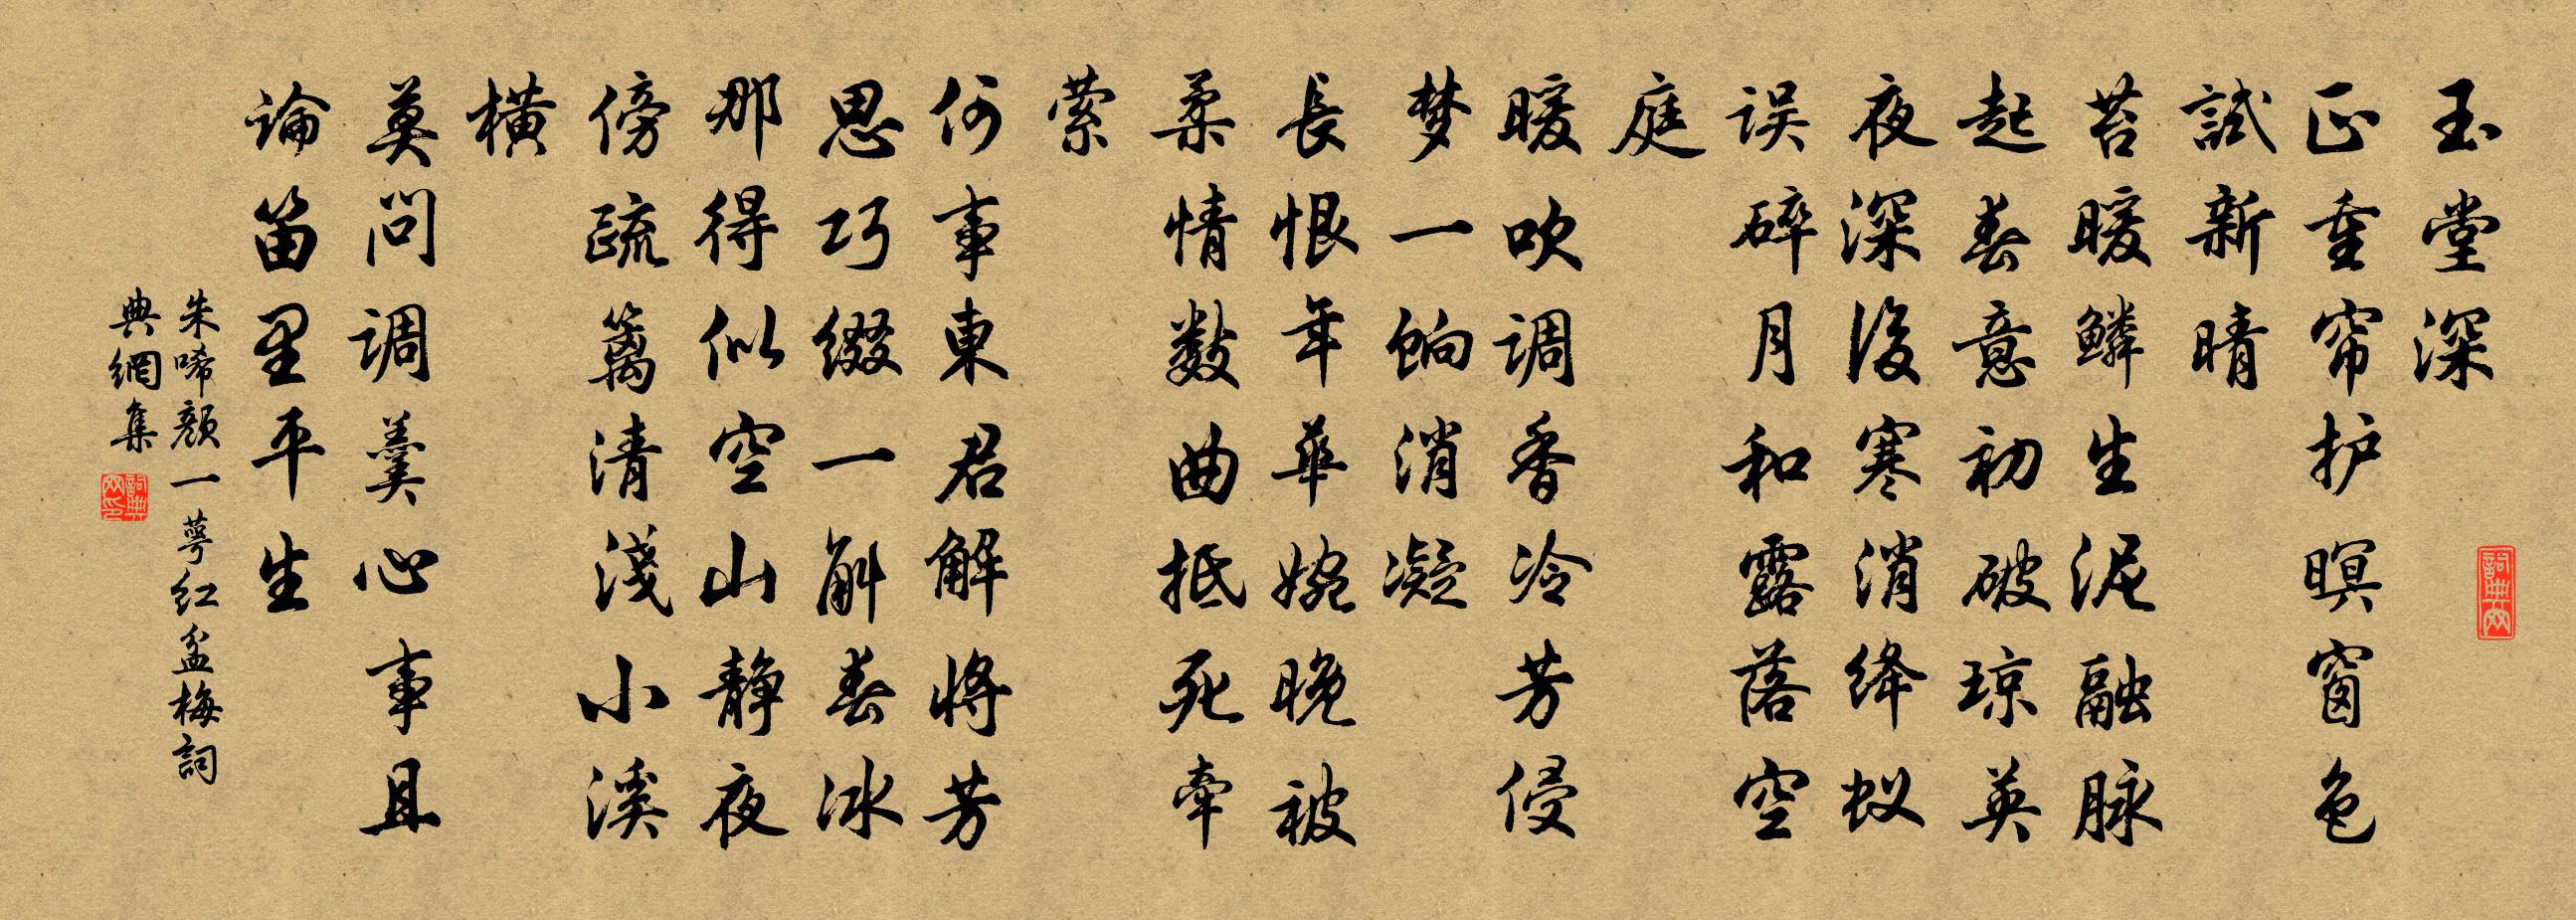 玉堂深
正重帘护暝窗色
試新晴
苔暖鳞生泥融脉
起春意初破琼英
夜深後寒消绛蚁
误碎月和露落空
庭
暖吹调香冷芳侵
梦一饷消凝
長恨年華婉晚被
柔情数曲抵死牵
萦
何事東君解将芳
思巧缀一斛春冰
那得似空山静夜
傍疏篱清淺小溪
横
莫问调羹心事且
论笛里平生
朱唏颜一萼红盆梅詞
典網集
詞典网
詞典网印